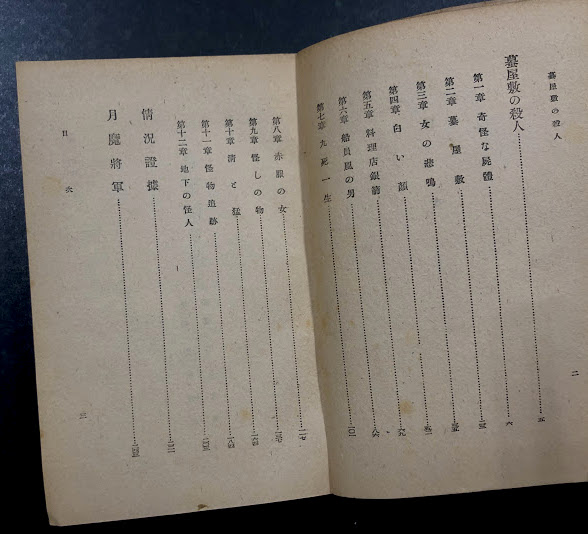 墓屋敷の殺人
二
墓屋敷の殺人
第一章 奇怪な屍體
第二章 墓屋敷
第三章 女の悲鳴
第四章 白い顔 六九
第五章 料理店銀猫 八六
第六章 船員風の男 一〇二
第七章 九死一生 一一七
第八章 赤服の女
第九章 怪しの物
第十章
第十一章 怪物追跡
第十二章 地下の怪人
情況證據
月魔將軍 二四五
目次
三